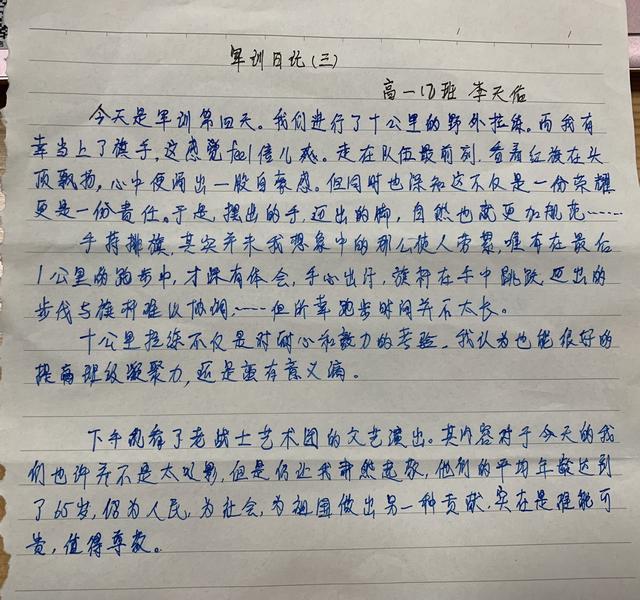 军训日记(三)
高一17班 李天佑
今天是军训第四天。我们进行了十公里的野外拉练。而我有
幸当上了旗手,这感觉feel倍儿爽。走在队伍最前列,看着红旗在头
顶飘扬,心中便涌出一股自豪感。但同时也深知这不仅是一份荣耀
更是一份责任。于是,摆出的手,迈出的脚,自然也就更加规范……
手持排旗,其实并未我想象中的那么使人劳累,唯有在最后
1公里的跑步中,才深有体会,手心出汗,旗杆在手中跳跃,迈出的
步伐与旗杆难以协调……但所幸跑步时间并不太长。
十公里拉练不仅是对耐心和毅力的考验,我认为也能很好的
提高班级凝聚力,还是蛮有意义滴。
下午观看了老战士艺术团的文艺演出。其内容对于今天的我
们也许并不是太吸引,但是仍让我肃然起敬,他们的平均年龄达到
了65岁,仍为人民,为社会,为祖国做出另一种贡献,实在是难能可
贵,值得尊敬。